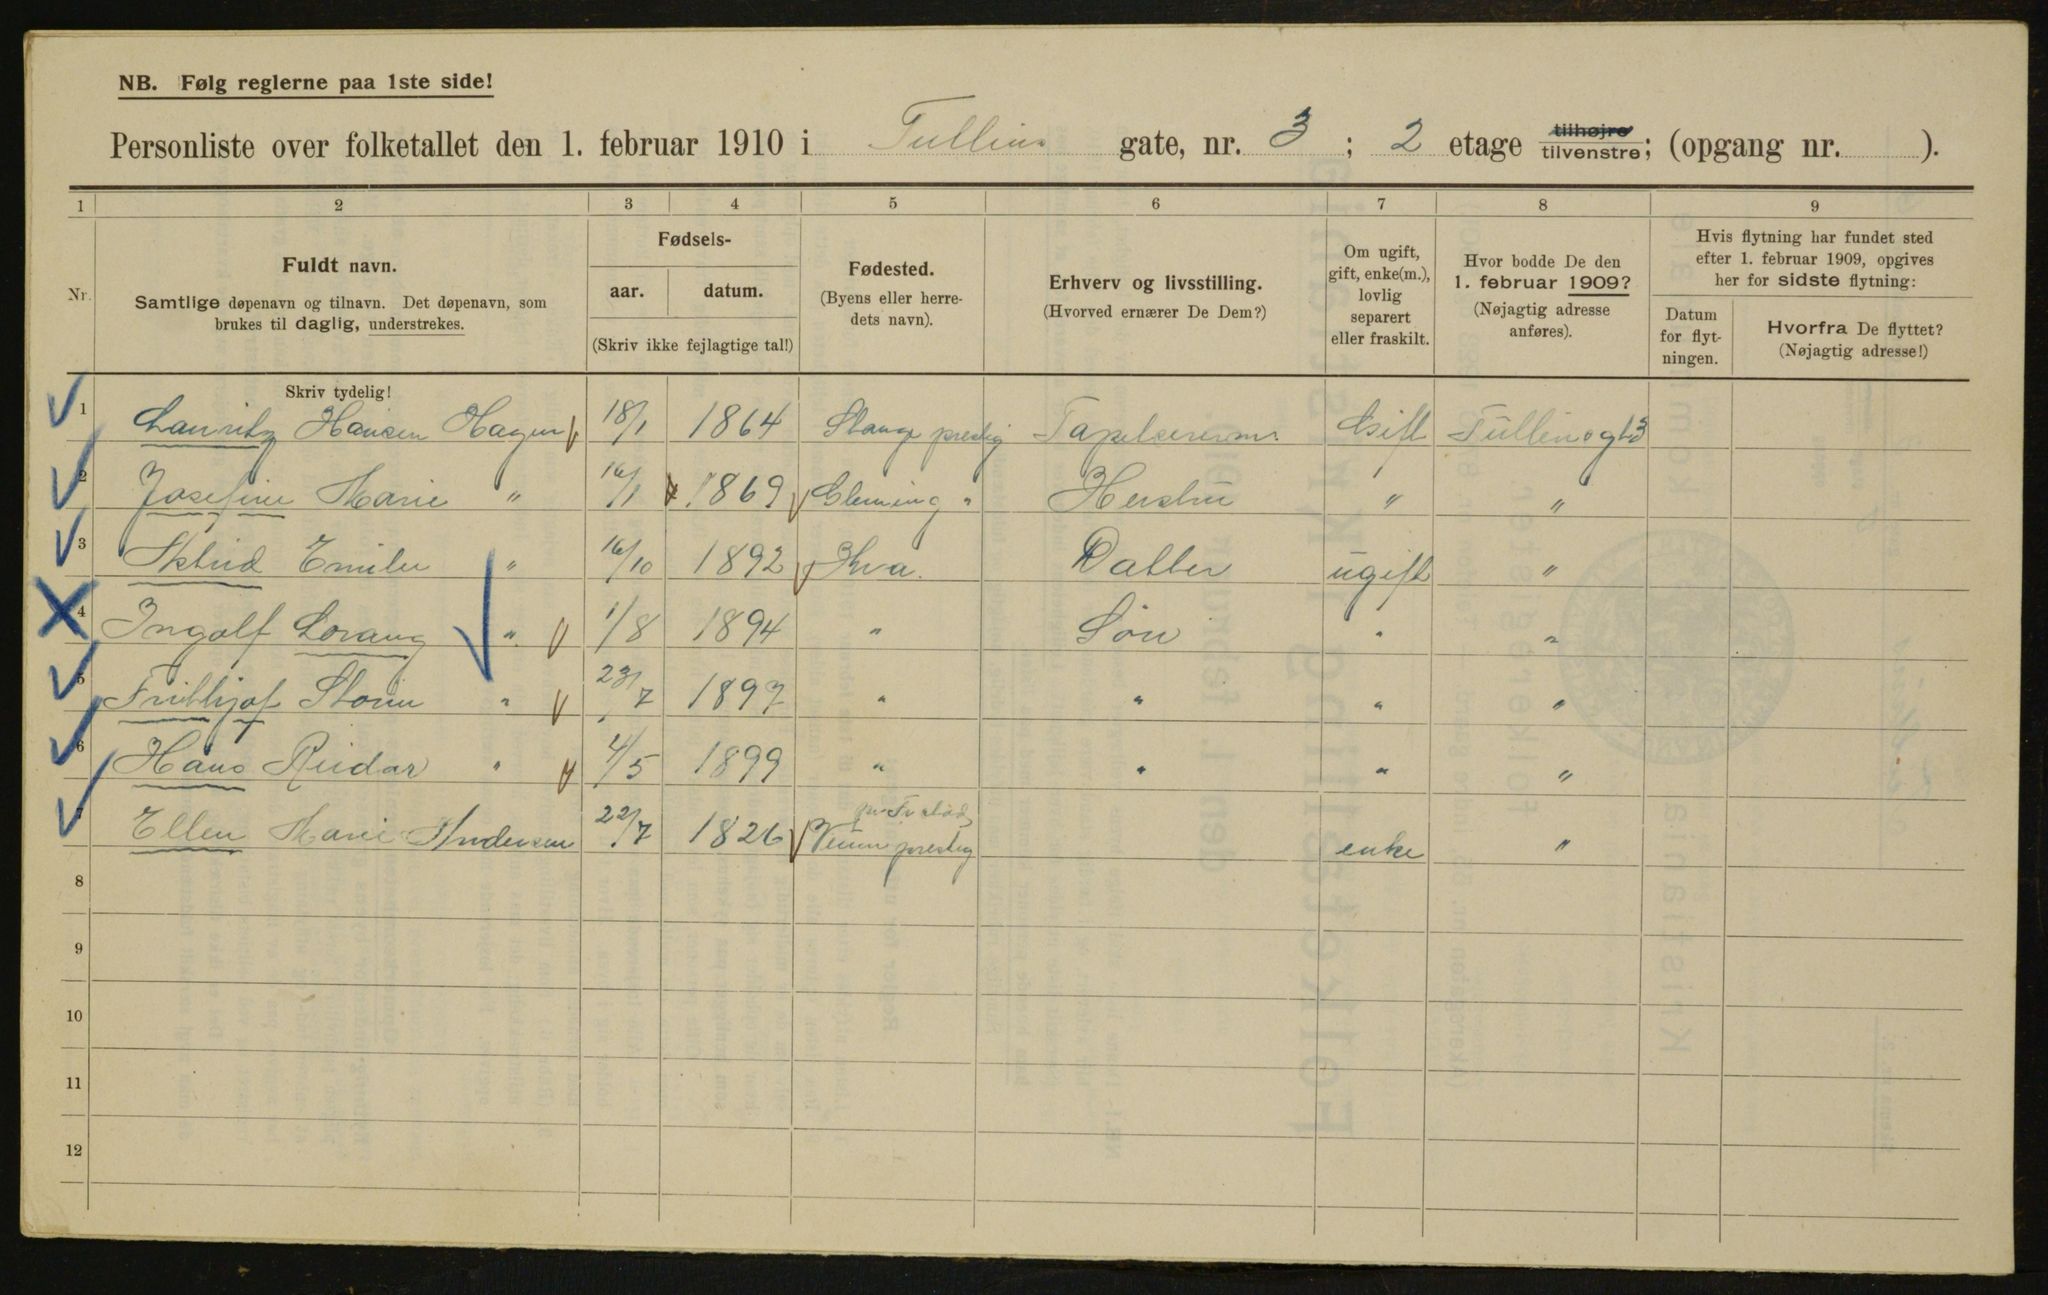 NB. Følg reglerne paa 1ste side!
Personliste over folketallet den 1. februar 1910 i Tullins gate, nr. 3 ; 2 etage tilhøjre tilvenstre; (opgang nr. ).
1 2 3 4 5 6 7 8 9
Nr.
Fuldt navn.
Samtlige døpenavn og tilnavn. Det døpenavn, som
brukes til daglig, understrekes.
Fødsels-
aar. datum.
(Skriv ikke fejlagtige tal!)
Fødested.
(Byens eller herre-
dets navn).
Erhverv og livsstilling.
(Hvorved ernærer De Dem?)
Om ugift,
gift, enke(m.),
lovlig
separert
eller fraskilt.
Hvor bodde De den
1. februar 1909?
(Nøjagtig adresse
anføres).
Hvis flytning har fundet sted
efter 1. februar 1909, opgives
her for sidste flytning:
Datum
for flyt-
ningen.
Hvorfra De flyttet?
(Nøjagtig adresse!)
Skriv tydelig!
1 Lauritz Hansen Hagen 18/1 1864 Stange prestig Gift Tullinsgt 3
2 Josefine Marie " 16/1 1869 Gleming " " "
3 Astrid Emilie " 16/10 1892 Kra. Datter ugift "
4 Ingolf Lorang " 1/8 1894 " Søn " "
5 Frithjof Storm " 23/7 1897 " " " "
6 Hans Reidar " 4/5 1899 " " " "
7 Ellen Marie Andersen 22/7 1826 prestig enke "
8
9
10
11
12